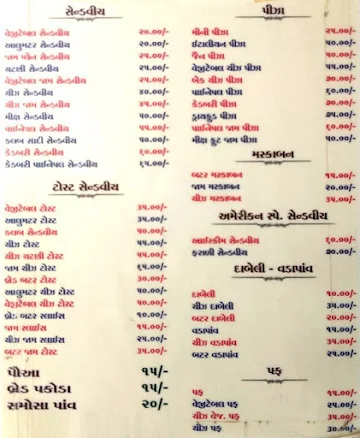 સેન્ડવીચ
વેજીટેબલ સેન્ડવીચ ૨૦.૦૦/-
આલુમટર સેન્ડવીચ ૨૦.૦૦/-
જામ પ્લેન સેન્ડવીચ ૨૫.૦૦/-
ચટણી સેન્ડવીચ ૨૫.૦૦/-
વેજીટેબલ જામ સેન્ડવીચ ૨૫.૦૦/-
ચીઝ સેન્ડવીચ ૩૦.૦૦/-
ચીઝ જામ સેન્ડવીચ ૩૫.૦૦/-
મીક્ષ સેન્ડવીચ ૫૫.૦૦/-
પાઈનેપલ સેન્ડવીચ ૫૫.૦૦/-
કલબ સાદી સેન્ડવીચ ૫૦.૦૦/-
કેડબરી સેન્ડવીચ ૬૦.૦૦/-
કેડબરી પાઈનેપલ સેન્ડવીચ ૬૫.૦૦/-
ટોસ્ટ સેન્ડવીચ
વેજીટેબલ ટોસ્ટ ૩૫.૦૦/-
આલુમટર ટોસ્ટ ૩૫.૦૦/-
કલબ સેન્ડવીચ ૬૦.૦૦/-
ચીઝ ટોસ્ટ ૫૫.૦૦/-
ચીઝ ચટણી ટોસ્ટ ૫૫.૦૦/-
જામ ચીઝ ટોસ્ટ ૬૫.૦૦/-
બ્રેડ બટર ટોસ્ટ ૩૦.૦૦/-
આલુમટર ચીઝ ટોસ્ટ ૫૦.૦૦/-
વેજીટેબલ ચીઝ ટોસ્ટ ૫૦.૦૦/-
બ્રેડ બટર સ્લાઈસ ૧૦.૦૦/-
જામ સ્લાઈસ ૧૫.૦૦/-
ચીઝ જામ સ્લાઈસ ૨૫.૦૦/-
બટર જામ ટોસ્ટ ૩૫.૦૦/-
પૌઆ ૧૫/-
બ્રેડ પકોડા ૧૫/-
સમોસા પાંવ ૨૦/-
પીઝા
મીની પીઝા ૨૫.૦૦/-
ઈટાલીયન પીઝા ૫૦.૦૦/-
જૈન પીઝા ૫૦.૦૦/-
વેજીટેબલ ચીઝ પીઝા ૫૫.૦૦/-
બેક ચીઝ પીઝા ૭૦.૦૦/-
પાઈનેપલ પીઝા ૬૦.૦૦/-
કેડબરી પીઝા ૭૦.૦૦/-
ડ્રાયફ્રુટ પીઝા ૭૫.૦૦/-
પાઈનેપલ જામ પીઝા ૬૦.૦૦/-
મીક્ષ ફ્રુટ જામ પીઝા ૫૦.૦૦/-
મસ્કાબન
બટર મસ્કાબન ૧૫.૦૦/-
જામ મસ્કાબન ૨૦.૦૦/-
ચીઝ મસ્કાબન ૩૫.૦૦/-
અમેરીકન સ્પે. સેન્ડવીચ
આઈસ્ક્રીમ સેન્ડવીચ ૬૦.૦૦/-
ફરાળી સેન્ડવીચ ૭૦.૦૦/-
દાબેલી - વડાપાંવ
દાબેલી ૧૦.૦૦/-
ચીઝ દાબેલી ૩૫.૦૦/-
બટર દાબેલી ૨૦.૦૦/-
વડાપાંવ ૧૫.૦૦/-
ચીઝ વડાપાંવ ૩૫.૦૦/-
બટર વડાપાંવ ૨૫.૦૦/-
પફ
પફ ૧૫.૦૦/-
વેજીટેબલ પફ ૨૫.૦૦/-
ચીઝ વેજ. પફ ૩૫.૦૦/-
ચીઝ પફ ૩૦.૦૦/-